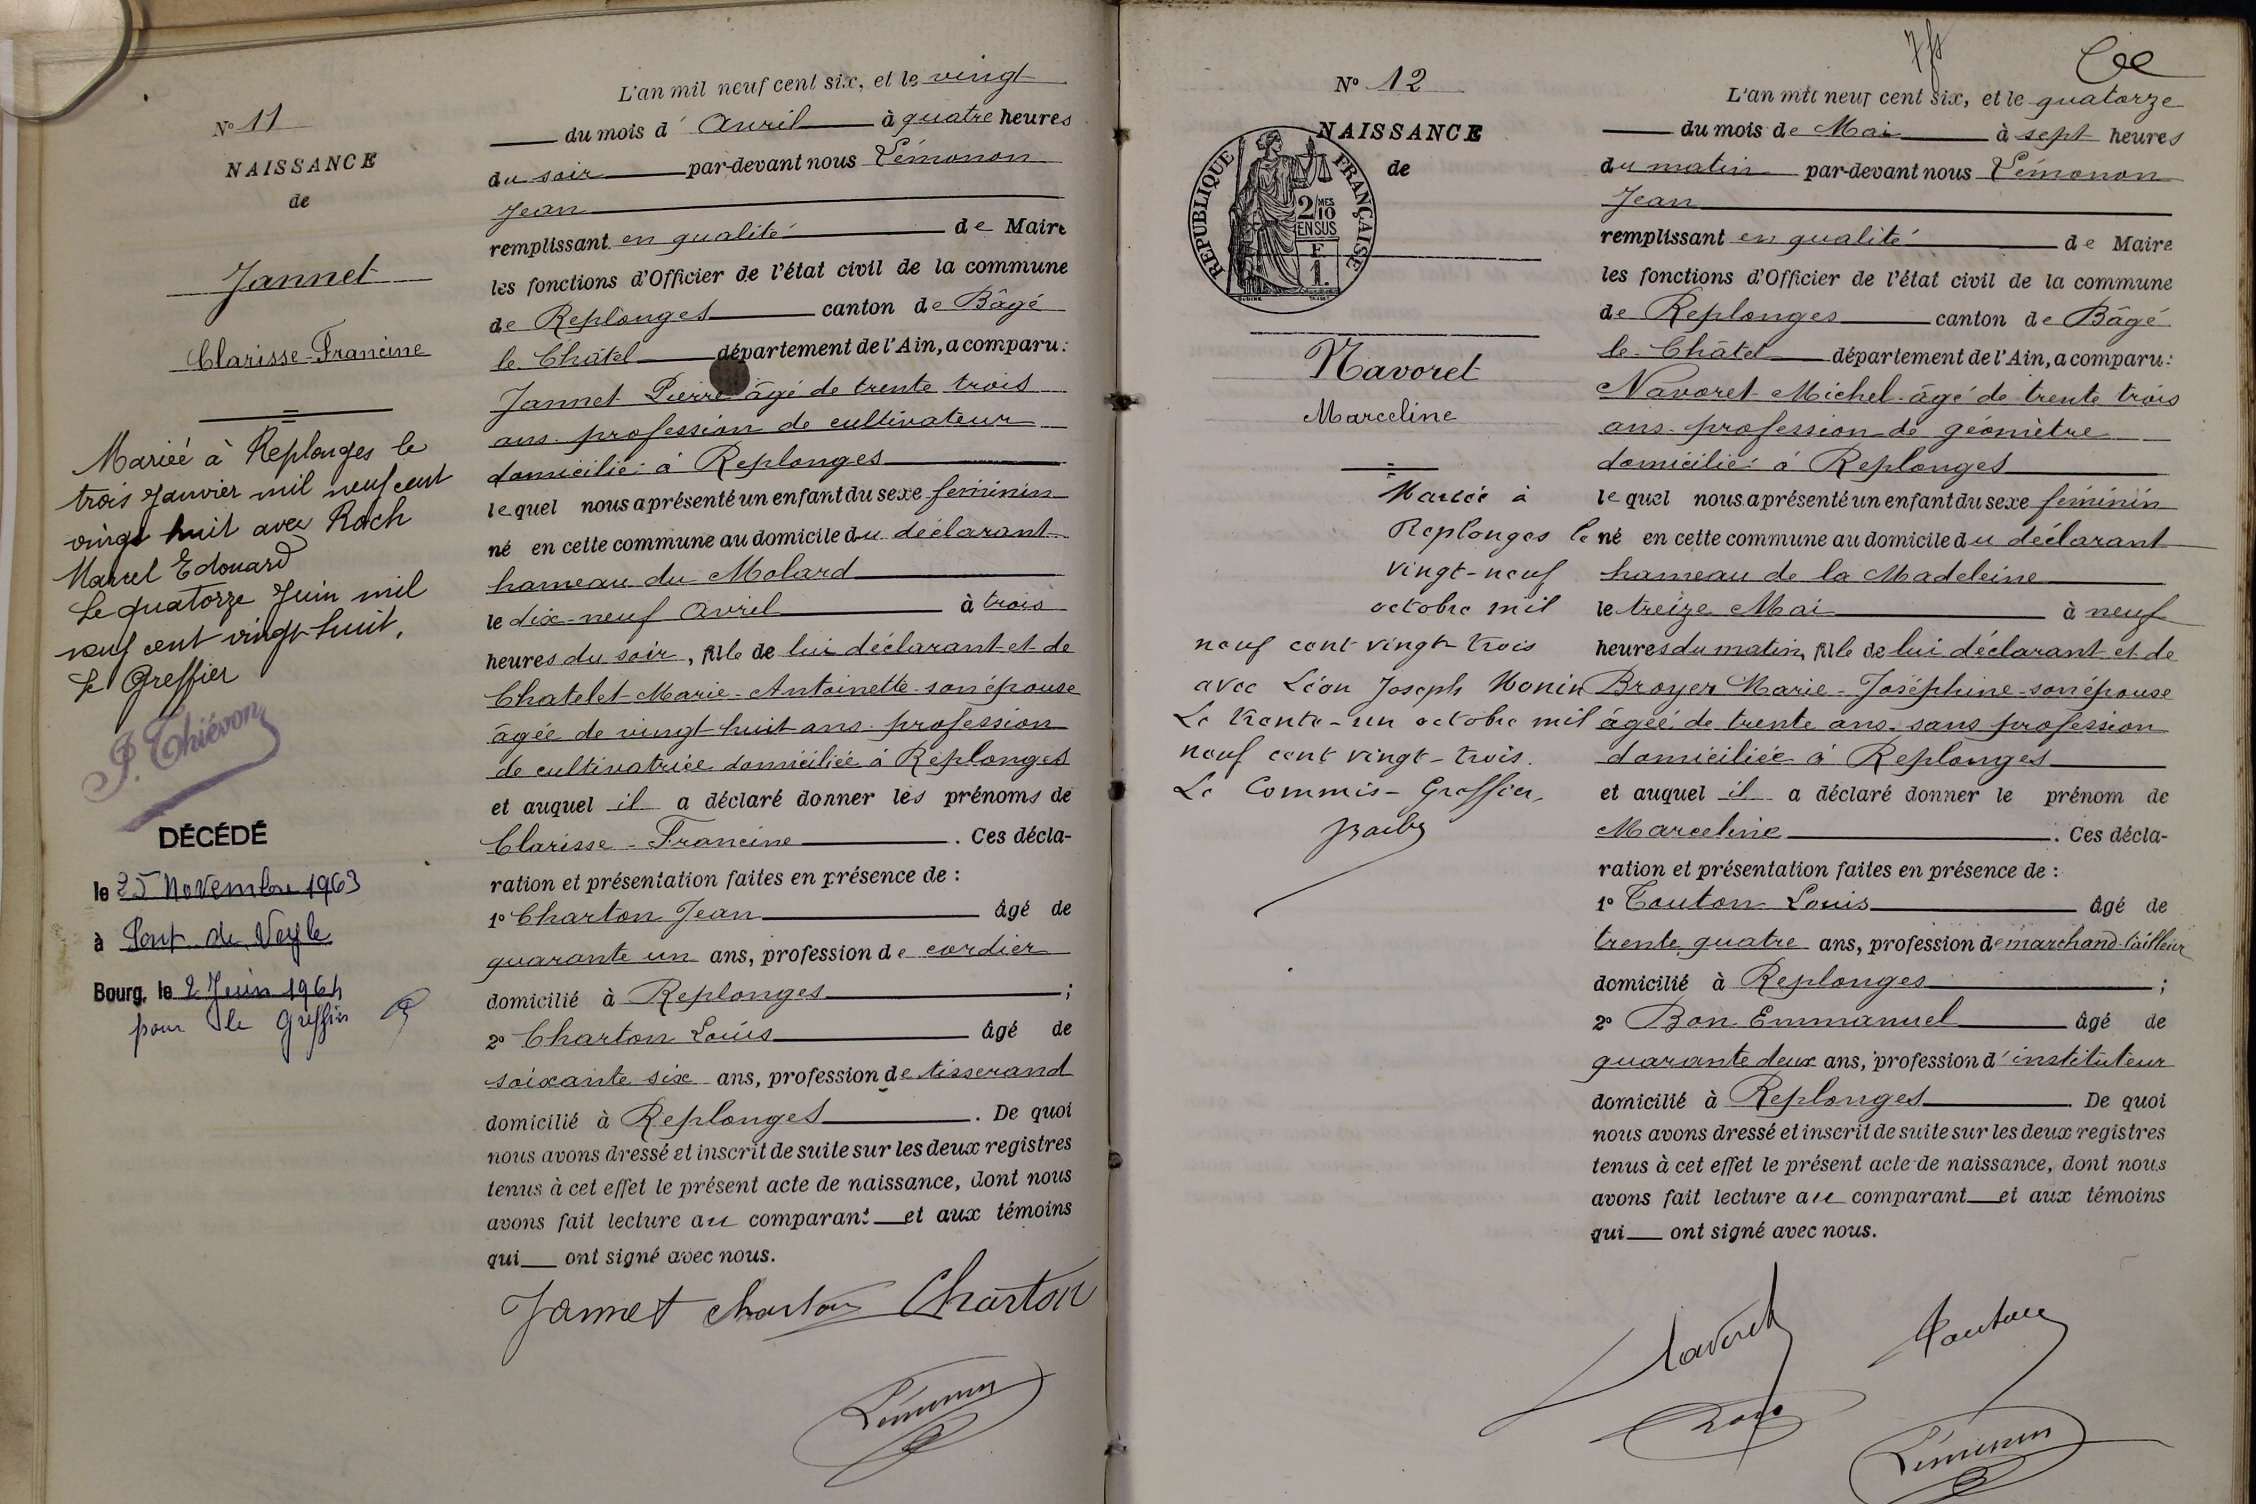 N° 11
NAISSANCE
de
Jannet
Clarisse-Francine
Mariée à Replonges le
trois Janvier mil neuf cent
vingt huit avec Roch
Marcel Edouard
Le quatorze Juin mil
neuf cent vingt-huit,
Le Greffier
P. Thiévon
DÉCÉDÉ
le 25 Novembre 1963
à Pont de Veyle
Bourg, le 2 Juin 1964
pour le Greffier
L'an mil neuf cent six, et le vingt
du mois d' Avril à quatre heures
du soir par-devant nous Lémonon
Jean
remplissant en qualité de Maire
les fonctions d'Officier de l'état civil de la commune
de Replonges canton de Bâgé
le Châtel département de l'Ain, a comparu:
Jannet Pierre âgé de trente trois
ans profession de cultivateur
domicilié à Replonges
lequel nous a présenté un enfant du sexe féminin
né en cette commune au domicile du déclarant
hameau du Molard
le dix-neuf avril à trois
heures du soir, fille de lui déclarant et de
Chatelet Marie-Antoinette son épouse
âgée de vingt huit ans profession
de cultivatrice domiciliée à Replonges
et auquel il a déclaré donner les prénoms de
Clarisse-Francine. Ces décla-
ration et présentation faites en présence de :
1° Charton Jean âgé de
quarante un ans, profession de cordier
domicilié à Replonges ;
2° Charton Louis âgé de
soixante six ans, profession de tisserand
domicilié à Replonges. De quoi
nous avons dressé et inscrit de suite sur les deux registres
tenus à cet effet le présent acte de naissance, dont nous
avons fait lecture au comparant et aux témoins
qui ont signé avec nous.
Jannet Charton Charton
Lémonon
N° 12
NAISSANCE
de
RÉPUBLIQUE FRANÇAISE
2/10 MES
EN SUS
F
1.
Navoret
Marceline
Mariée à
Replonges le
vingt-neuf
octobre mil
neuf cent vingt-trois
avec Léon Joseph Monin
Le trente-un octobre mil
neuf cent vingt-trois.
Le Commis-Greffier,
L'an mil neuf cent six, et le quatorze
du mois de Mai à sept heures
du matin par-devant nous Lémonon
Jean
remplissant en qualité de Maire
les fonctions d'Officier de l'état civil de la commune
de Replonges canton de Bâgé
le Châtel département de l'Ain, a comparu:
Navoret Michel âgé de trente trois
ans profession de géomètre
domicilié à Replonges
lequel nous a présenté un enfant du sexe féminin
né en cette commune au domicile du déclarant
hameau de la Madeleine
le treize Mai à neuf
heures du matin, fille de lui déclarant et de
Broyer Marie-Joséphine son épouse
âgée de trente ans sans profession
domiciliée à Replonges
et auquel il a déclaré donner le prénom de
Marceline. Ces décla-
ration et présentation faites en présence de :
1° Touton Louis âgé de
trente quatre ans, profession de marchand-tailleur
domicilié à Replonges ;
2° Bon Emmanuel âgé de
quarante deux ans, profession d'instituteur
domicilié à Replonges. De quoi
nous avons dressé et inscrit de suite sur les deux registres
tenus à cet effet le présent acte de naissance, dont nous
avons fait lecture au comparant et aux témoins
qui ont signé avec nous.
Navoret Touton
Bon
Lémonon